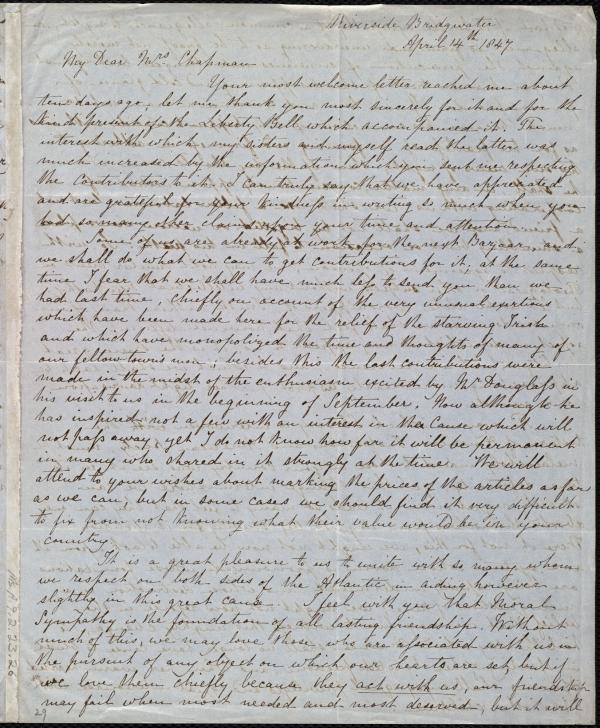 Riverside Bridgwater
April 14th 1847
My Dear Mrs Chapman
Your most welcome letter reached me about
ten days ago, let me thank you most sincerely for it and for the
kind present of the Liberty Bell which accompanied it. The
interest with which my sisters and myself read the latter was
much increased by the information which you sent me respecting
the contributors to it. I can truly say that we have appreciated
and are grateful for your kindness in writing so much when you
had so many other claims upon your time and attention
Some of us are already at work for the next Bazaar and
we shall do what we can to get contributions for it, at the same
time I fear that we shall have much less to send you than we
had last time, chiefly on account of the very unusual exertions
which have been made here for the relief of the starving Irish
and which have monopolyzed the time and thoughts of many of
our fellow-towns men; besides this the last contributions were
made in the midst of the enthusiasm excited by Mr Douglass in
his visit to us in the beginning of September. Now although he
has inspired not a few with an interest in the Cause which will
not pass away, yet I do not know how far it will be permanent
in many who shared in it strongly at the time. We will
attend to your wishes about marking the prices of the articles as far
as we can, but in some cases we should find it very difficult
to fix from not knowing what their value would be in your
country.
It is a great pleasure to us to unite with so many whom
we respect on both sides of the Atlantic in aiding however
slightly in this great cause. I feel with you that Moral
Sympathy is the foundation of all lasting friendship. Without
much of this, we may love those who are associated with us in
the pursuit of any object on which our hearts are set, but if
we love them chiefly because they act with us, our friendship
may fail when most needed and most deserved, but it will
29